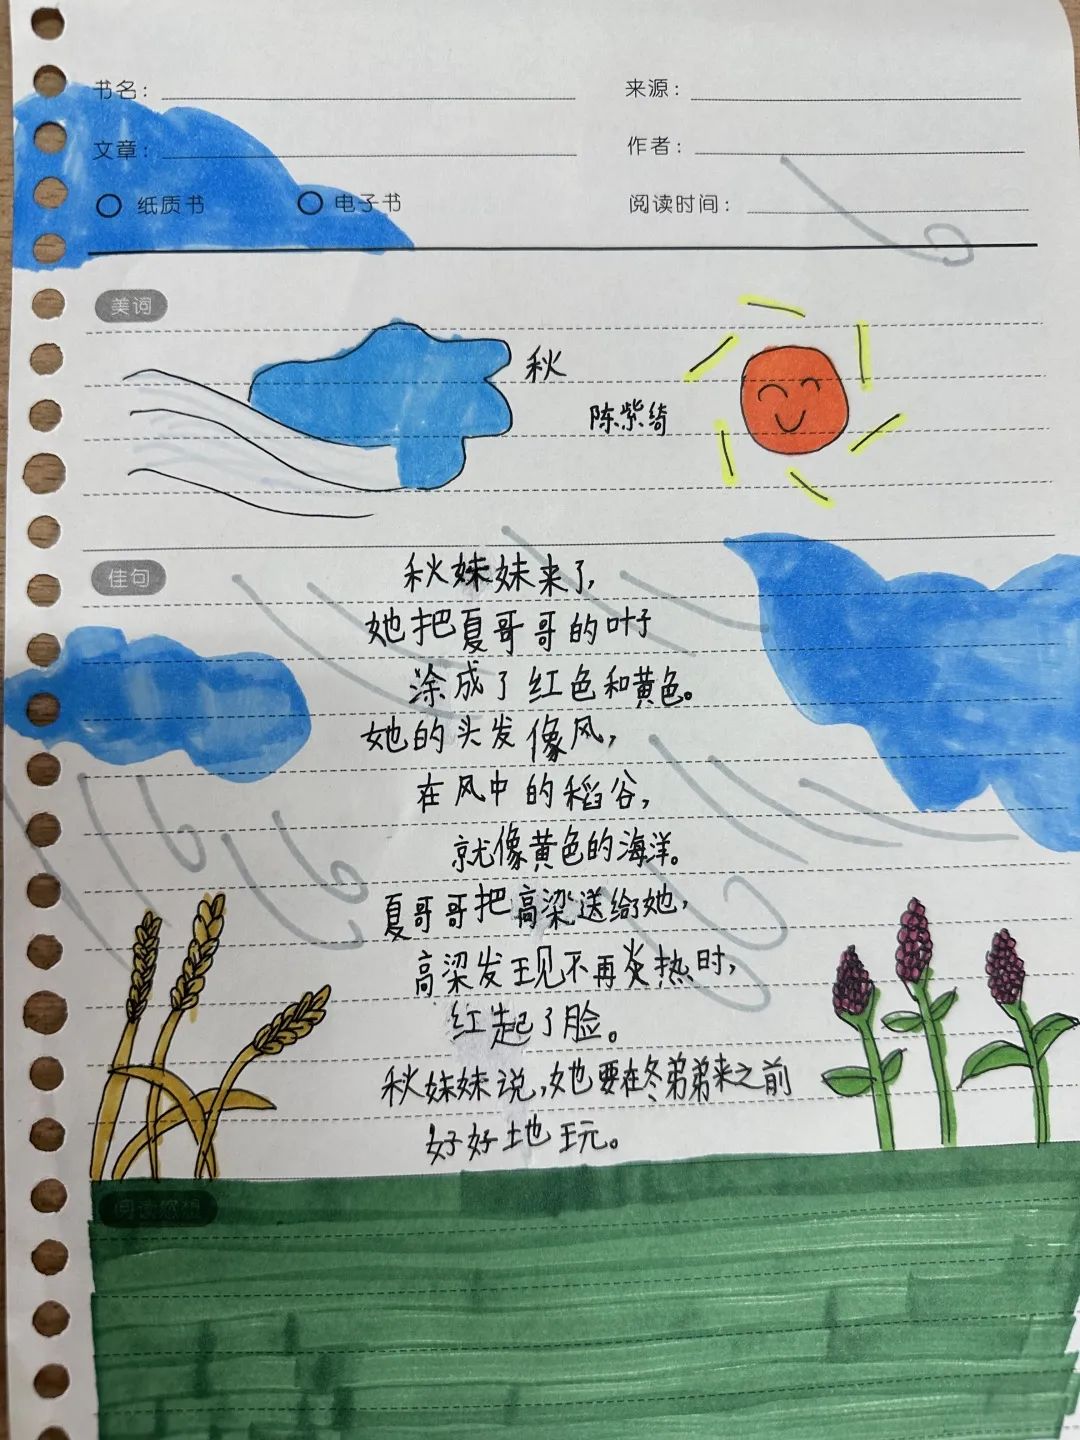 书名：
来源：
文章：
作者：
纸质书
电子书
阅读时间：
美词
秋
陈紫绮
佳句
秋妹妹来了，
她把夏哥哥的叶子
涂成了红色和黄色。
她的头发像风，
在风中的稻谷，
就像黄色的海洋。
夏哥哥把高梁送给她，
高梁发现不再炎热时，
红起了脸。
秋妹妹说，她要在冬弟弟来之前
好好地玩。
阅读感想